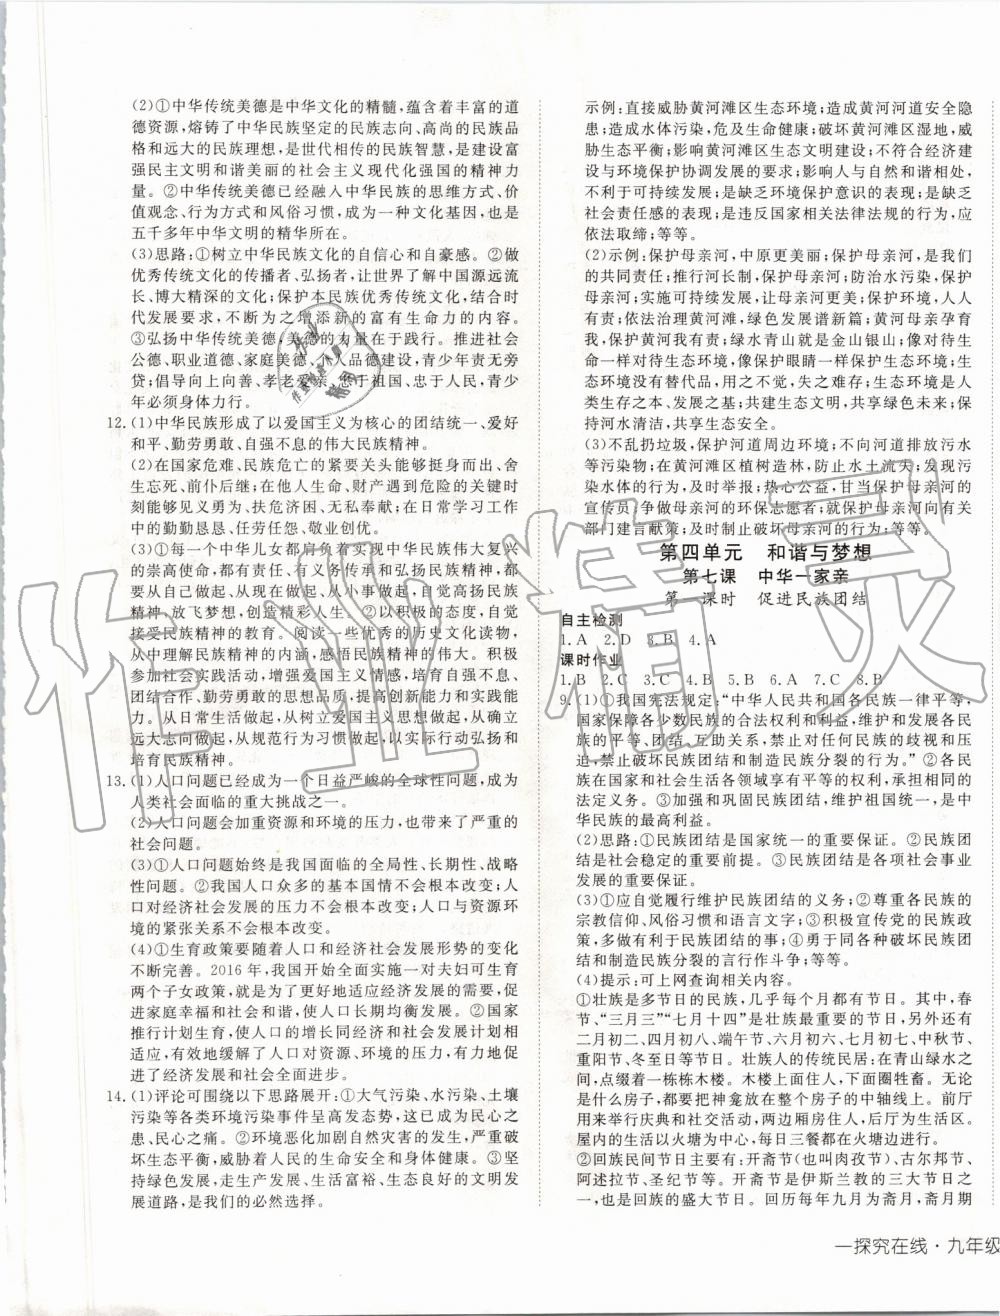 (2)①中华传统美德是中华文化的精髓,蕴含着丰富的道
德资源,熔铸了中华民族坚定的民族志向、高尚的民族品
格和远大的民族理想,是世代相传的民族智慧,是建设富
强民主文明和谐美丽的社会主义现代化强国的精神力
量。②中华传统美德已经融入中华民族的思维方式、价
值观念、行为方式和风俗习惯,成为一种文化基因,也是
五千多年中华文明的精华所在。
(3)思路:①树立中华民族的自信心和自豪感。②做
优秀传统文化的传播者、弘扬者,让世界了解中国源远流
长、博大精深的文化;保护本民族优秀传统文化,结合时
代发展不断为之增添新的富有生命力的内容。
③弘扬中华传统美德,美德的力量在于践行。推进社会
公德、职业道德、家庭美德、个人品德建设,青少年责无旁
贷;倡导向上向善、孝老爱亲、忠于祖国、忠于人民,青少
年必须身体力行。
12.(1)中华民族形成了以爱国主义为核心的团结统一、爱好
和平、勤劳勇敢、自强不息的伟大民族精神。
(2)在国家危难、民族危亡的紧要关头能够挺身而出、舍
生忘死、前仆后继;在他人生命、财产遇到危险的关键时
刻能够见义勇为、扶危济困、无私奉献;在日常学习工作
中的勤勤恳恳、任劳任怨、敬业创优。
(3)①每一个中华儿女都肩负着实现中华民族伟大复兴
的崇高使命,应高扬民族精神,自觉传承和弘扬民族精神,
要从自己做起、从现在做起、从点滴做起。高扬民族
精神,放飞梦想,创造精彩人生。②以积极的态度,自觉
接受民族精神的教育。阅读一些优秀的历史文化读物,
从中理解民族精神的内涵,感悟民族精神的伟大。积极
参加社会实践活动,增强爱国主义情感,培育自强不息、
团结合作、勤劳勇敢的思想品质,提高创新能力和实践能
力。从日常生活做起,从树立爱国主义思想做起,从确立
远大志向做起,从规范行为做起,以实际行动弘扬和
培育民族精神。
13.(1)人口问题已经成为一个日益严峻的全球性问题,成为
人类社会面临的重大挑战之一。
(2)人口问题会加重资源和环境的压力,也带来了严重的
社会问题。
(3)①人口问题始终是我国面临的全局性、长期性、战略
性问题。②我国人口众多的基本国情不会根本改变;人
口对经济社会发展的压力不会根本改变;人口与资源环
境的紧张关系不会根本改变。
(4)①生育政策要随着人口和经济社会发展形势的变化
不断完善。2016年,我国开始全面实施一对夫妇可生育
两个子女政策,就是为了更好地适应经济发展的需要,促
进家庭幸福和社会和谐,使人口长期均衡发展。②国家
推行计划生育,使人口的增长同经济和社会发展计划相
适应,有效地缓解了人口对资源、环境的压力,有力地促
进了经济发展和社会全面进步。
14.(1)评论可围绕以下思路展开:①大气污染、水污染、土壤
污染等各类环境污染事件呈高发态势,这已成为民心之
患、民心之痛。②环境恶化加剧自然灾害的发生,严重破
坏生态平衡,威胁着人民的生命安全和身体健康。③坚
持绿色发展,走生产发展、生活富裕、生态良好的文明发
展道路,是我们的必然选择。
示例:直接威胁黄河滩区生态环境;造成黄河河道安全隐
患;造成水体污染,危及生命健康;破坏黄河滩区湿地,威
胁生态平衡;影响黄河滩区生态文明建设;不符合经济建
设与环境保护协调发展的要求;影响人与自然和谐相处,
不利于可持续发展;是缺乏环境保护意识的表现;是缺乏
社会责任感的表现;是违反国家相关法律法规的行为,应
依法取缔;等等。
(2)示例:保护母亲河,中原更美丽;保护母亲河,是我们
的共同责任;推行河长制,保护母亲河;防治水污染,保护
母亲河;实施可持续发展,让母亲河更美;保护环境,人人
有责;依法治理黄河,绿色发展谱新篇;黄河母亲孕育
我,保护黄河我有责;绿水青山就是金山银山;对待母亲
河要像对待生命一样;像保护眼睛一样保护母亲河,像对
待生命一样对待生态环境,保护眼睛一样保护生态环境,像
对待生命一样对待生态环境;生态环境没有替代品,用之不觉,失之难存;
共建生态文明,共享绿色未来;保
持河水清洁,共享生态安全。
(3)不乱扔垃圾,保护河道周边环境;不向河道排放污水
等污染物;在黄河滩区植树造林,防止水土流失;发现污
染水体的行为,及时举报;热心公益,甘当保护母亲河的
宣传员,争做母亲河的环保志愿者;就保护母亲河向有关
部门建言献策;及时制止破坏母亲河的行为;等等。
第四单元 和谐与梦想
第七课 中华一家亲
第一课时 促进民族团结
自主检测
1.A 2.D 3.B 4.A
课时作业
1.B 2.C 3.C 4.B 5.B 6.A 7.C 8.B
9.(1)①我国宪法规定:“中华人民共和国各民族一律平等,
国家保障各少数民族的合法权利和利益,维护和发展各民
族的平等、团结、互助关系,禁止对任何民族的歧视和压
迫,禁止破坏民族团结和制造民族分裂的行为。”②各民
族在国家和社会生活各领域享有平等的权利,承担相同的
法定义务。③加强和巩固民族团结,维护祖国统一,是中
华民族的最高利益。
(2)思路:①民族团结是国家统一的重要保证。②民族团
结是社会稳定的重要前提。③民族团结是各项社会事业
发展的重要保证。
(3)①应自觉履行维护民族团结的义务;②尊重各民族的
宗教信仰、风俗习惯和语言文字;③积极宣传党的民族政
策,多做有利于民族团结的事;④勇于同各种破坏民族团
结和制造民族分裂的言行作斗争;等等。
(4)提示:可上网查询相关内容。
①壮族是多节日的民族,几乎每个月都有节日。其中,春
节、“三月三”“七月十四”是壮族最重要的节日,另外还有
二月初二、四月初八、端午节、六月初六、七月初七、中秋节、
重阳节、冬至日等节日。壮族人的传统民居:在青山绿水之
间,点缀着一栋栋木楼。木楼上面住人,下面圈牲畜。无论
是什么房子,都要把神龛放在整个房子的中轴线上。前厅
用来举行庆典和社交活动,两边厢房住人,后厅为生活区。
屋内的生活以火塘为中心,每日三餐都在火塘边进行。
②回族民间节日主要有:开斋节(也叫肉孜节)、古尔邦节、
阿述拉节、圣纪节等。开斋节是伊斯兰教的三大节日之
一,也是回族的盛大节日。回历每年九月为斋月,斋月期
一探究在线·九年级
作业精灵